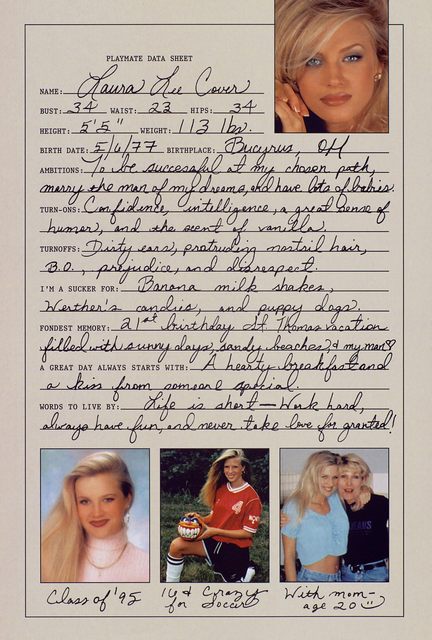 PLAYMATE DATA SHEET
NAME: Laura Lee Cover
BUST: 34 WAIST: 23 HIPS: 34
HEIGHT: 5'5" WEIGHT: 113 lbs.
BIRTH DATE: 5/6/77 BIRTHPLACE: Bucyrus, OH
AMBITIONS: To be successful at my chosen path,
marry the man of my dreams, and have lots of babies.
TURN-ONS: Confidence, intelligence, a great sense of
humor, and the scent of vanilla.
TURNOFFS: Dirty ears, protruding nostril hair,
B.O., prejudice, and disrespect.
I'M A SUCKER FOR: Banana milk shakes,
Werther's candies, and puppy dogs.
FONDEST MEMORY: 21st birthday St. Thomas vacation
filled with sunny days, sandy beaches, & my man♡
A GREAT DAY ALWAYS STARTS WITH: A hearty breakfast and
a kiss from someone special.
WORDS TO LIVE BY: Life is short—Work hard,
always have fun, and never take love for granted!
4
Class of '95
16 & Crazy
for Soccer
With mom-
age 20 ☺